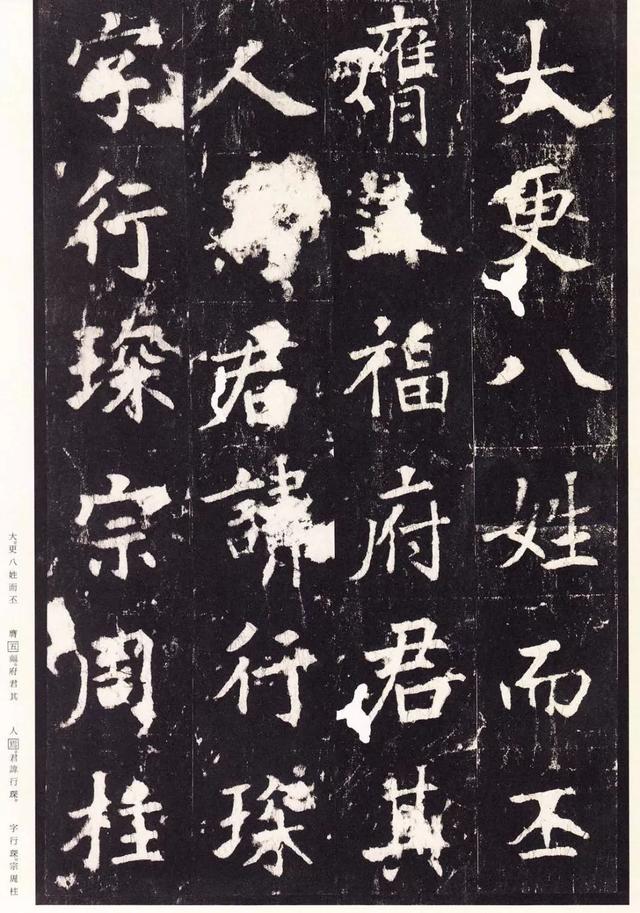 大更八姓而丕
膺五福府君其
人君諱行琛
字行琛宗周柱
大。更八姓而丕　膺五福。府君其　人。君諱行琛。　字行琛。宗周柱